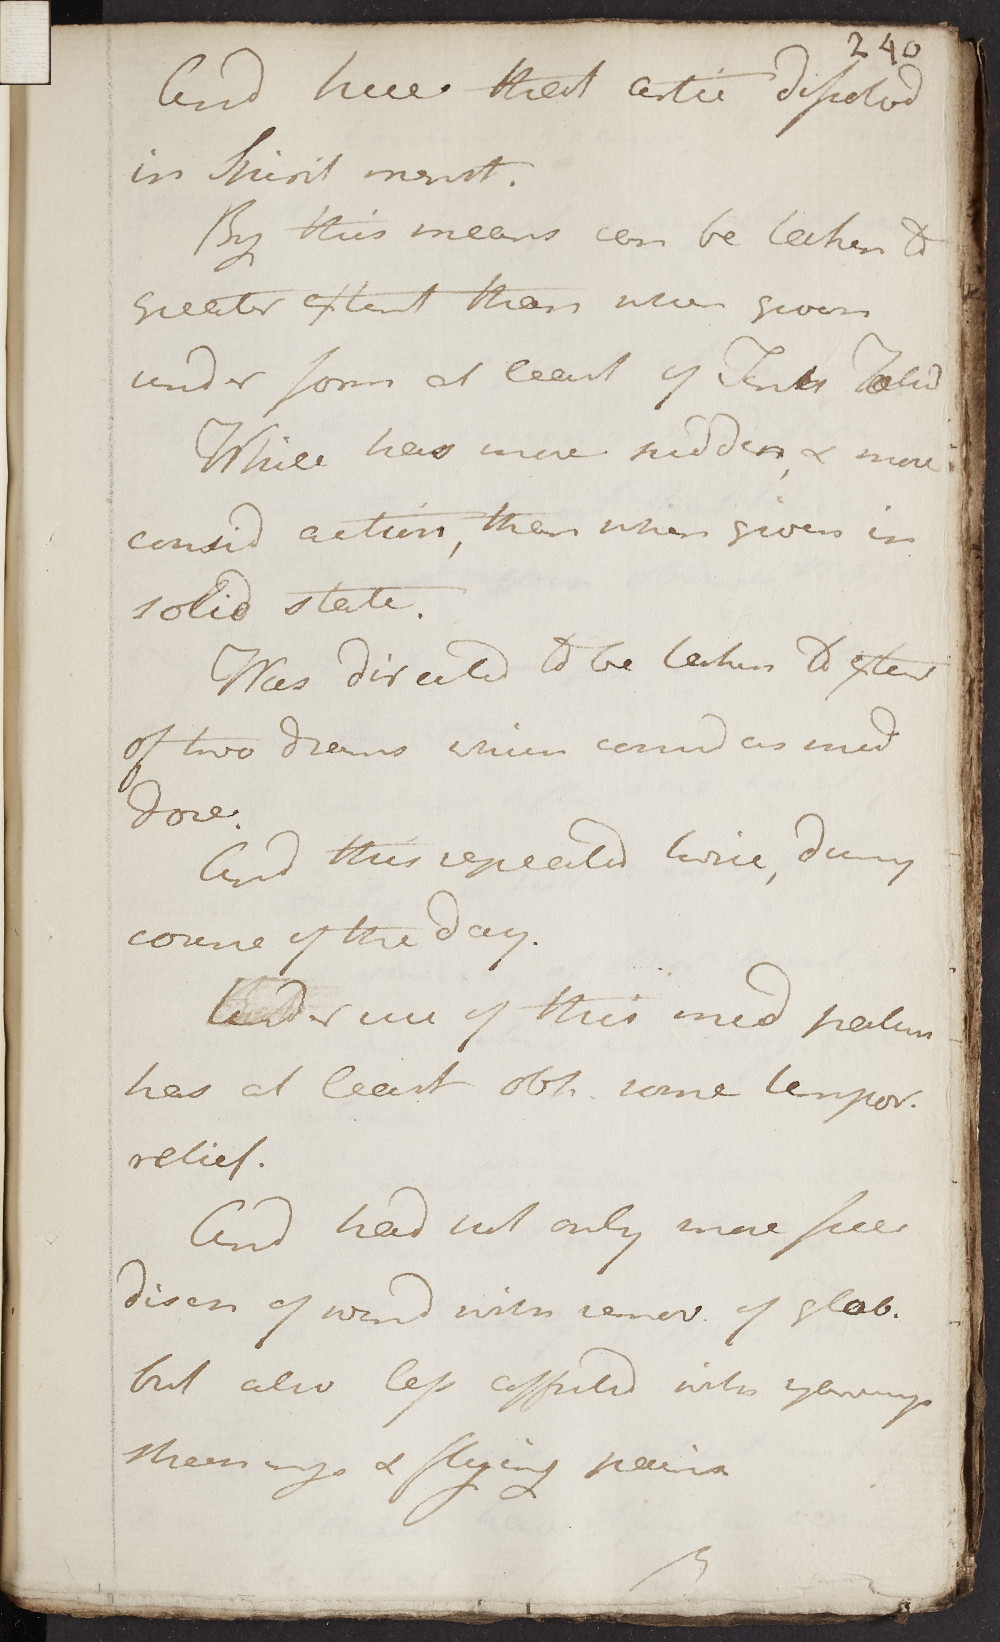 240
And here that artic dissolved
in Spirit menst.
By this means can be taken to
greater extent than when given
under form at least of Tinct
While has more sudden, & more
consid action, than when given in
solid state.
Was directed to be taken to extent
of two drams which consid as med
dose.
And this repeated twice, during
course of the day.
Under use of this med patien
has at least obt. some tempor.
relief.
And had not only more free
discn of wind with remov. of glob.
but also less affected with yawnings
& flying pains